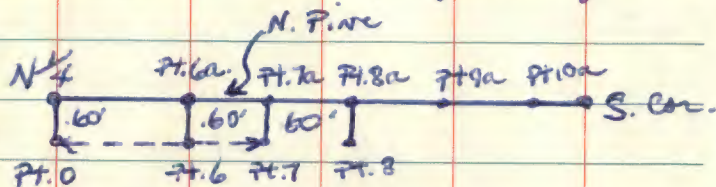 N. Pine
N 1/4 Pt.6a. Pt.7a Pt.8a Pt9a Pt10a
S. Cor.
.60' .60' 60'
Pt.0 Pt.6 Pt.7 Pt.8